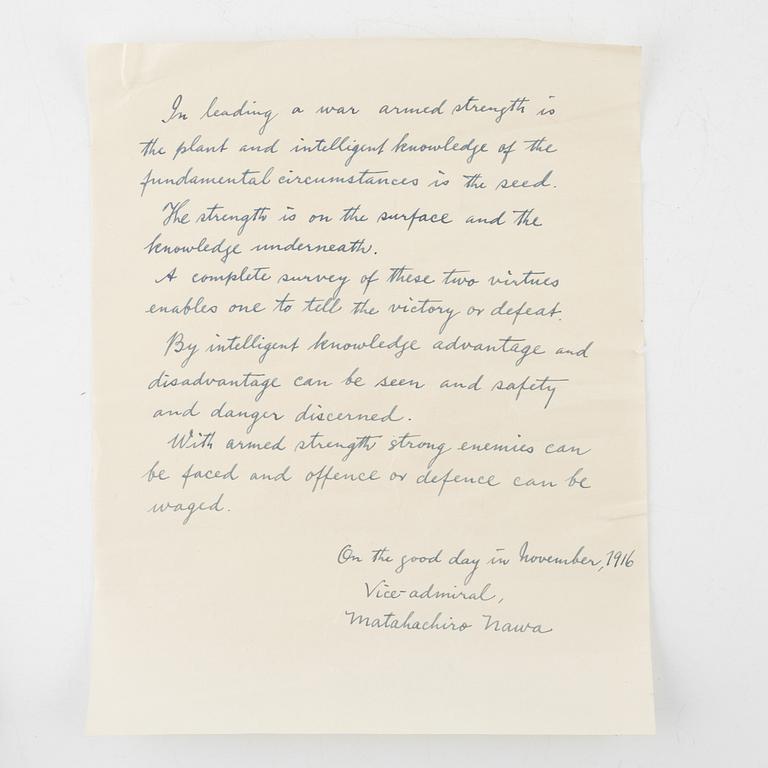 In leading a war armed strength is
the plant and intelligent knowledge of the
fundamental circumstances is the seed.
The strength is on the surface and the
knowledge underneath.
A complete survey of these two virtues
enables one to tell the victory or defeat.
By intelligent knowledge advantage and
disadvantage can be seen and safety
and danger discerned.
With armed strength strong enemies can
be faced and offence or defence can be
waged.
On the good day in November, 1916
Vice-admiral,
Matahachiro Nawa